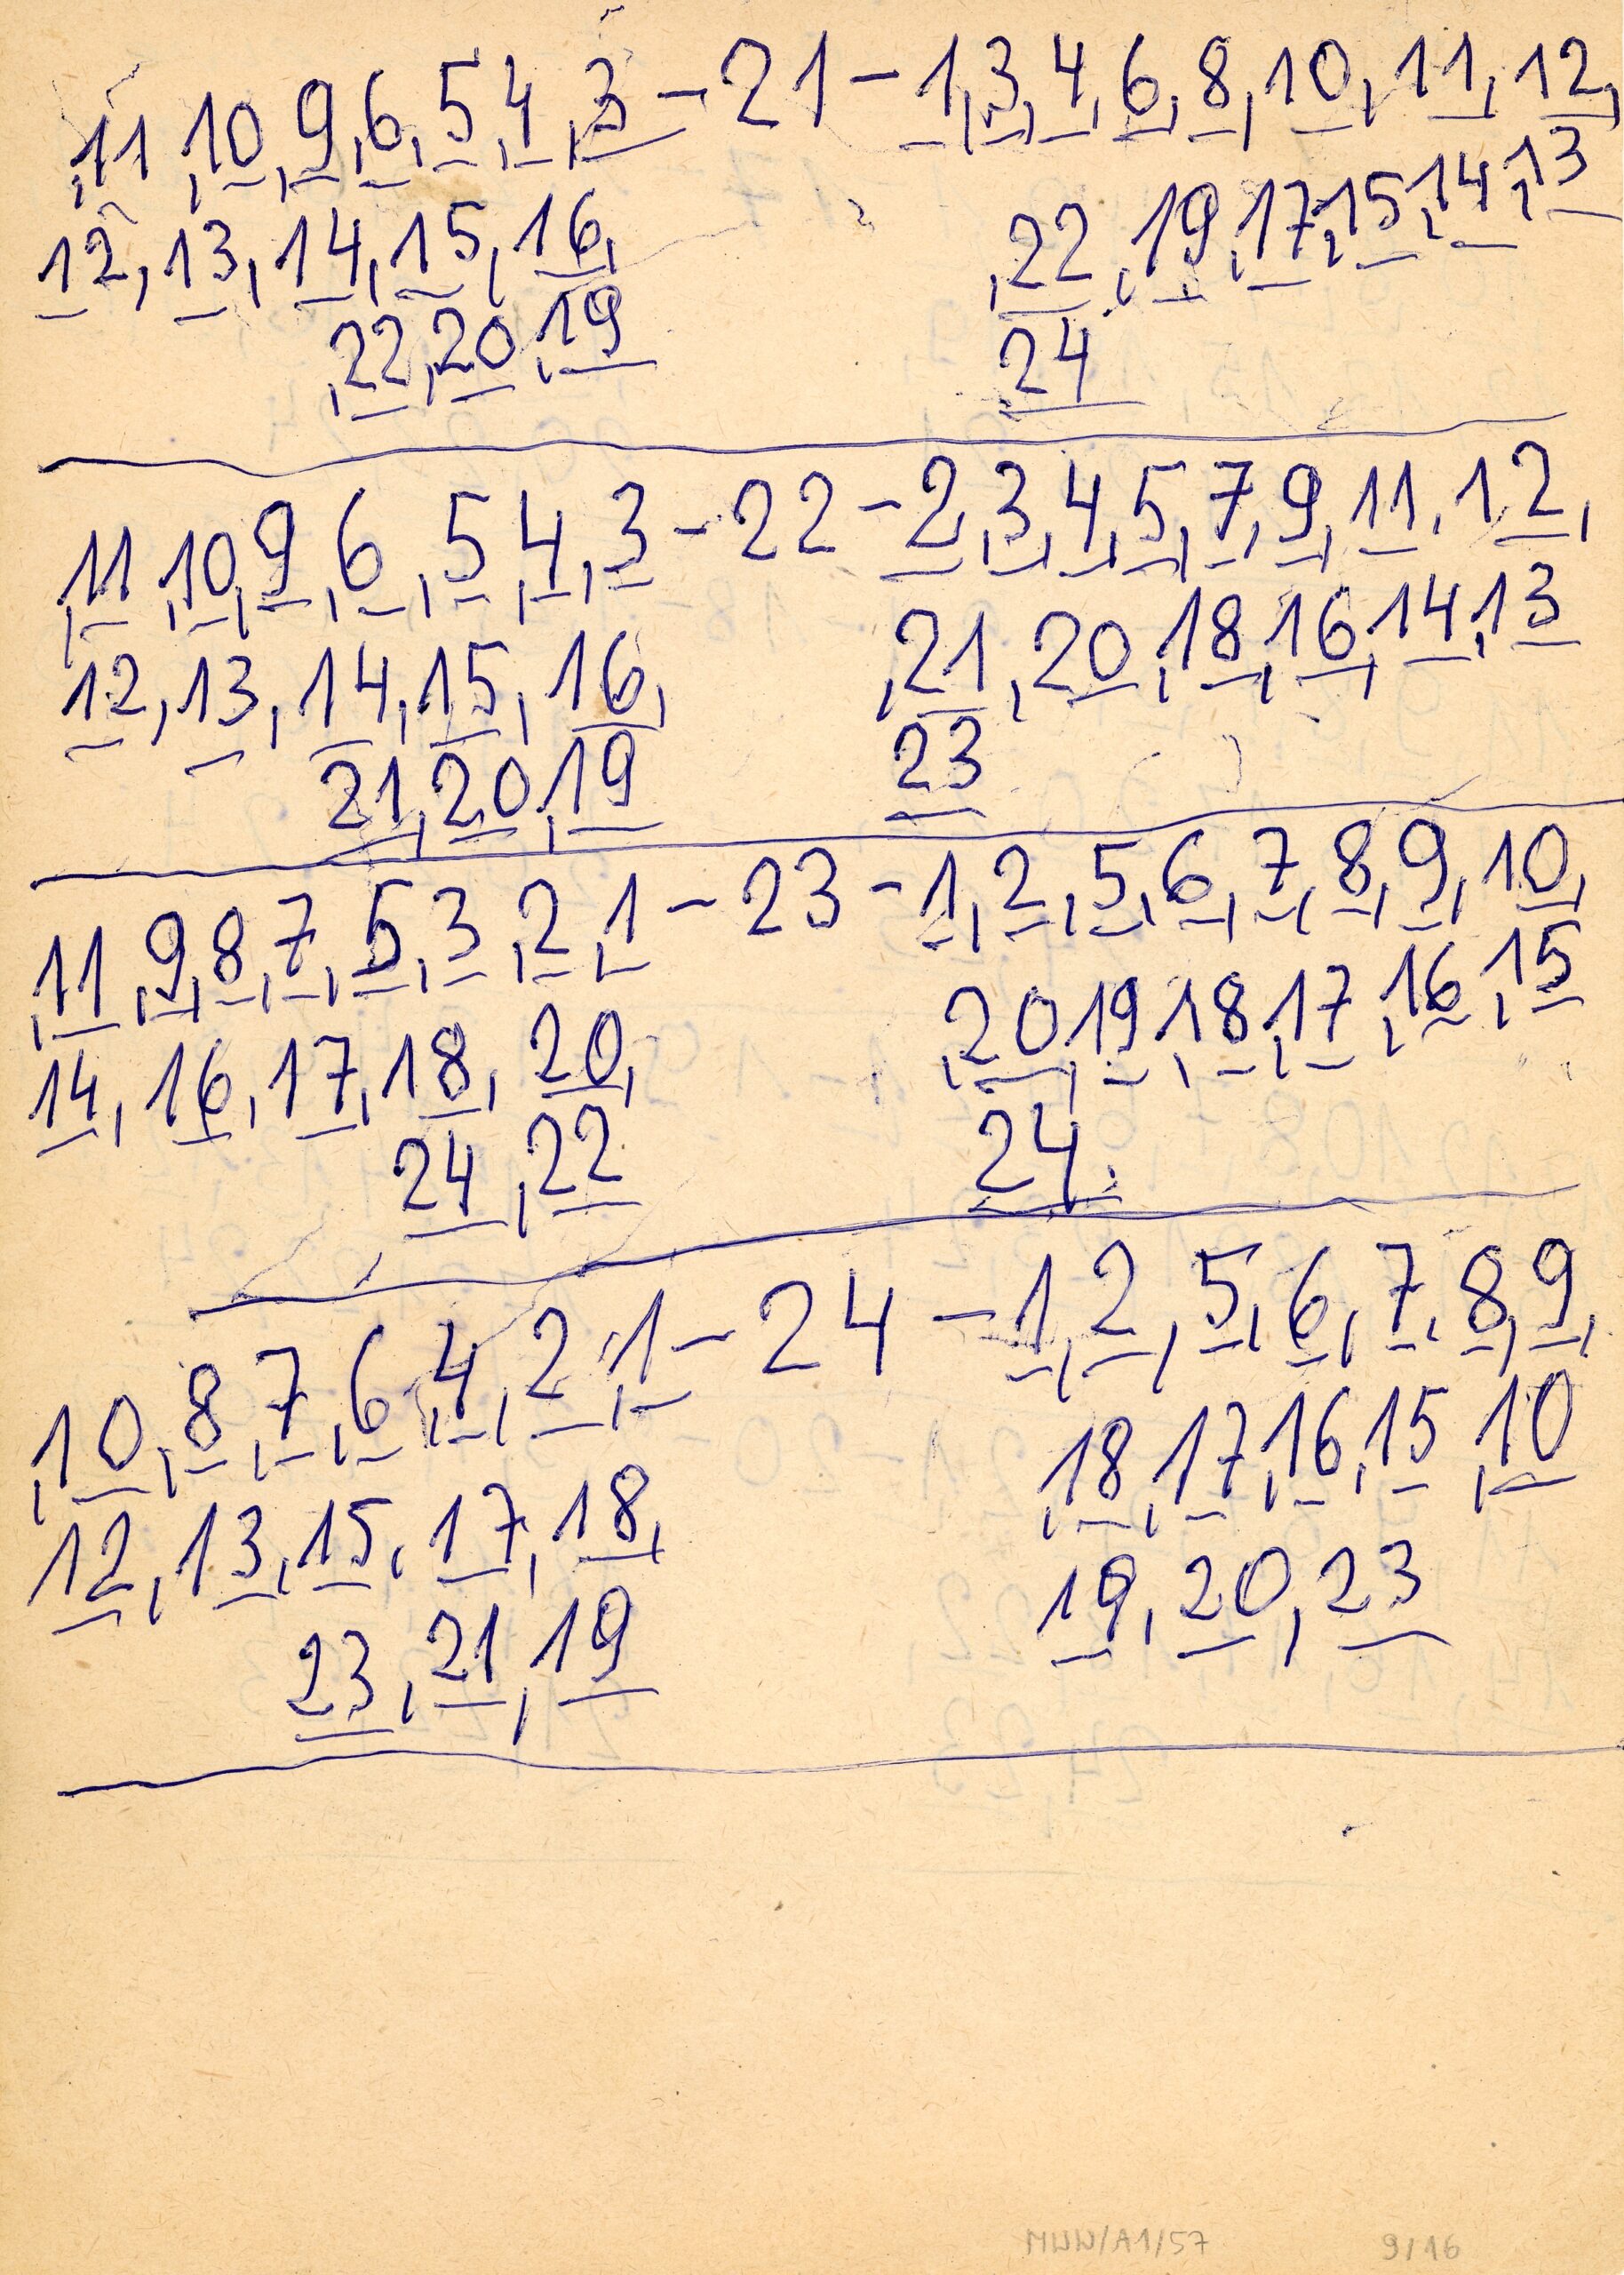 ,11,10,9,6,5,4,3 – 21 – 1,3,4,6,8,10,11,12,
12,13,14,15,16, ,22,19,17,15,14,13
,22,20,19 24
,11,10,9,6,5,4,3 – 22 – 2,3,4,5,7,9,11,12,
12,13,14,15,16, ,21,20,18,16,14,13
21,20,19 23
,11,9,8,7,5,3,2,1 – 23 – 1,2,5,6,7,8,9,10,
14,16,17,18,20, ,20,19,18,17,16,15
24,22 24
,10,8,7,6,4,2,1 – 24 – 1,2,5,6,7,8,9,
12,13,15,17,18, ,18,17,16,15,10
23,21,19 19,20,23
MWW/A1/57 9/16